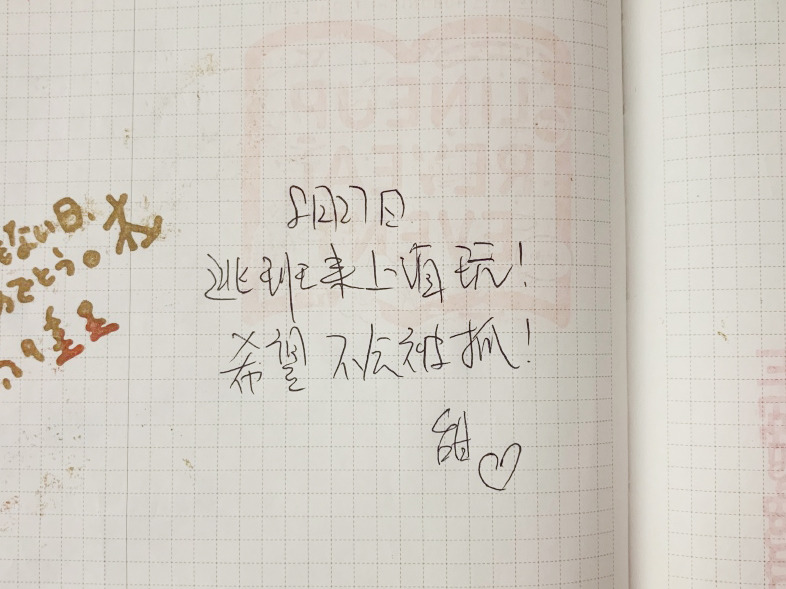 8月27日
逃班来上值玩!
希望不会被抓!
甜♡
ない日、
でとう。
LINEUP
REVEAL
EVENT